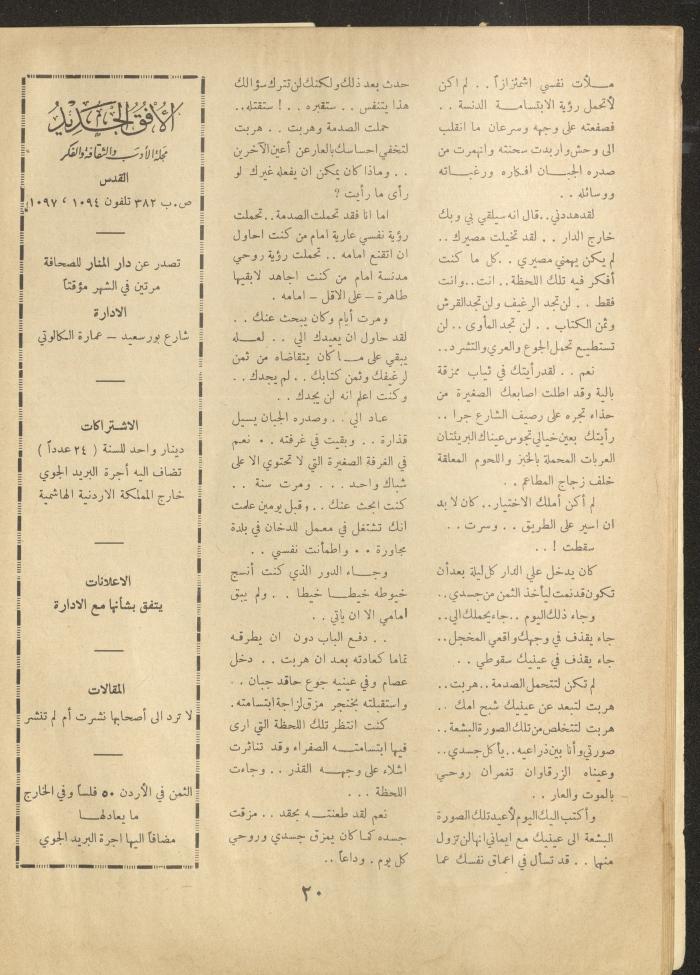 مـلأت نفسي اشمئزازاً . . لم اكن
لأتحمل رؤية الابتسامـة الدنسة . .
فصفعته على وجهه وسرعان ما انقلب
الى وحش واربدت سحنته وانهمرت من
صدره الجبـان افكاره ورغبـاته
ووسائله . .
لقد هددني .. قال انه سيلقي بي وبك
خارج الدار . . لقد تخيلت مصيرك ..
لم يكن يهمني مصيري . . كل ما كنت
أفكر فيه تلك اللحظة.. انت .. وانت
فقط . . لن تجد الرغيف ولن تجد القرش
وثمن الكتاب . . لن تجد المأوى .. لن
تستطيع تحمل الجوع والعري والتشرد ..
نعم . . لقد رأيتك في ثياب ممزقة
بالية وقد اطلت اصابعك الصغيرة من
حذاء تجره على رصيف الشارع جرا . .
رأيتك بعين خيالي تجوس عيناك البريئتان
العربات المحملة بالخبز واللحوم المعلقة
خلف زجاج المطاعم . .
لم أكن أملك الاختيار .. كان لا بد
ان اسير على الطريق . . وسرت . .
سقطت ! . .
كان يدخل علي الدار كل ليلة بعد أن
تكون قد نمت ليأخذ الثمن من جسدي . .
وجاء ذلك اليوم .. جاء يحملك الي ..
جاء يقذف في وجهك واقعي المخجل ..
جاء يقذف في عينيك سقوطي . .
لم تكن لتتحمل الصدمة .. هربت ..
هربت لتبعد عن عينيك شبح امك . .
هربت لتتخلص من تلك الصورة البشعة ..
صورتي وأنا بين ذراعيه .. يأكل جسدي ..
وعيناه الزرقاوان تغمران روحي
بالموت والعار . .
وأكتب اليك اليوم لأعيد تلك الصورة
البشعة الى عينيك مع ايماني انها لن تزول
منهما . . قد تسأل في اعماق نفسك عما
حدث بعد ذلك ولكنك لن تترك سؤالك
هذا يتنفس . . ستقبره . . ! ستقتله ..
حملت الصدمة وهربت . . هربت
لتخفي احساسك بالعار عن أعين الآخرين
. . وماذا كان يمكن ان يفعله غيرك لو
رأى ما رأيت ؟
اما انا فقد تحملت الصدمة .. تحملت
رؤية نفسي عارية امام من كنت احاول
ان اتقنع امامه .. تحملت رؤية روحي
مدنسة امام من كنت اجاهد لابقيها
طاهرة – على الاقل – امامه .
ومرت أيام وكان يبحث عنك . .
لقد حاول ان يعيدك الي . . لعـله
يبقي على مـا كان يتقاضاه من ثمن
لرغيفك وثمن كتابك . . لم يجدك ..
وكنت اعلم انه لن يجدك . .
عـاد الي . . وصدره الجبان يسيل
قذارة . . وبقيت في غرفته . . نعم
في الغرفة الصغيرة التي لا تحتوي الا على
شباك واحـد . . . ومرت سنة . .
كنت ابحث عنك . . وقبل يومين علمت
انك تشتغل في معمل للدخان في بلدة
مجاورة . . واطمأنت نفسي . .
وجـاء الدور الذي كنت أنسج
خيوطه خيطـا خيطا . . ولم يبق
امامي الا ان ياتي . .
. . دفـع الباب دون ان يطرقـه
تماما كعادته بعـد ان هربت . . دخل
عصام وفي عينيه جوع حاقد جبان . .
واستقبلته بخنجر مزق لزاجة ابتسامته .
كنت انتظر تلك اللحظة التي ارى
فيها ابتسامتـه الصفراء وقد تناثرت
اشلاء على وجهـه القذر . . وجاءت
اللحظة . . .
نعم لقد طعنتـه بحقد . . مزقت
جسده كما كان يمزق جسدي وروحي
كل يوم . وداعاً ..
الأفق الجديد
مجلة الأدب والثقافة والفكر
القدس
ص.ب ٣٨٢ تلفون ١٠٩٤ ، ١٠٩٧
تصدر عن دار المنار للصحافة
مرتين في الشهر مؤقتاً
الادارة
شارع بور سعيد – عمارة الكالوتي
الاشتراكات
دينار واحد للسنة ( ٢٤ عدداً )
تضاف اليه أجرة البريد الجوي
خارج المملكة الاردنية الهاشمية
الاعلانات
يتفق بشأنها مع الادارة
المقالات
لا ترد الى أصحابها نشرت أم لم تنشر
الثمن في الأردن ٥٠ فلساً وفي الخارج
ما يعادلهـا
مضافاً اليها اجرة البريد الجوي
٢٠